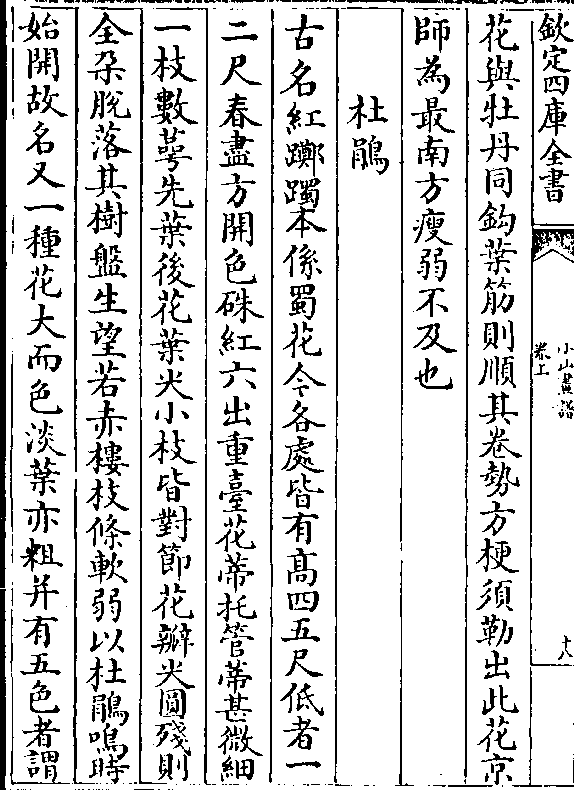 欽定四庫全書
小山畫譜
卷上
十八
花與牡丹同鈎葉筋則順其卷勢方梗須勒出此花京
師為最南方瘦弱不及也
杜鵑
古名紅躑躅本係蜀花今各處皆有高四五尺低者一
二尺春盡方開色硃紅六出重臺花蒂托管蒂甚微細
一枝數萼先葉後花葉尖小枝皆對節花瓣尖圓殘則
全朶脫落其樹盤生望若赤樓枝條軟弱以杜鵑鳴時
始開故名又一種花大而色淡葉亦粗并有五色者謂